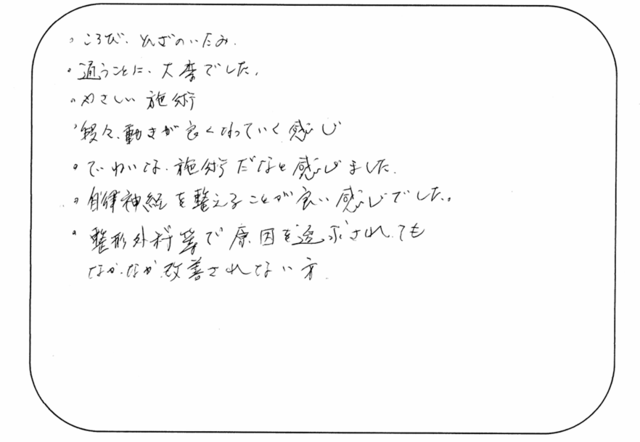 ・ころび、ひざのいたみ.
・通うことに、大変でした。
・やさしい施術
・段々、動きが良くなっていく感じ
・ていねいな、施術だなと感じました.
・自律神経を整えることが良い感じでした。
・整形外科等で原因を追求されても
なかなか改善されない方.